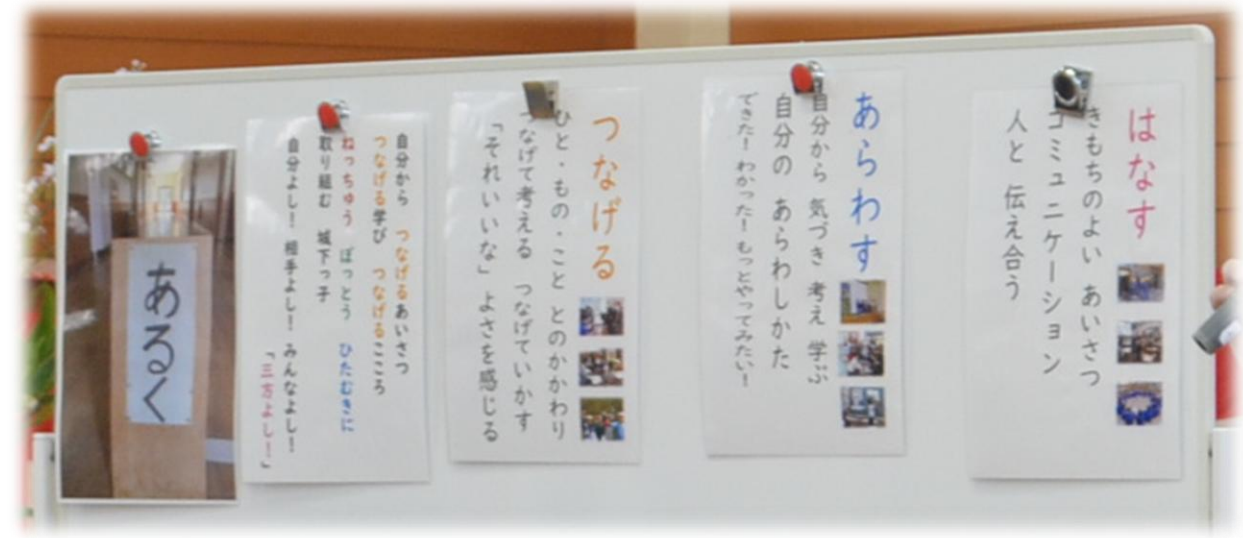 はなす
きもちのよい あいさつ
コミュニケーション
人と 伝え合う
あらわす
自分から 気づき 考え 学ぶ
自分の あらわしかた
できた！わかった！もっとやってみたい！
つなげる
ひと・もの・こと とのかかわり
つなげて考える つなげていかす
「それいいな」 よさを感じる
自分から つなげるあいさつ
つなげる学び つなげるこころ
ねっちゅう ぼっとう ひたむきに
取り組む 城下っ子
自分よし！ 相手よし！ みんなよし！
「三方よし！」
あるく